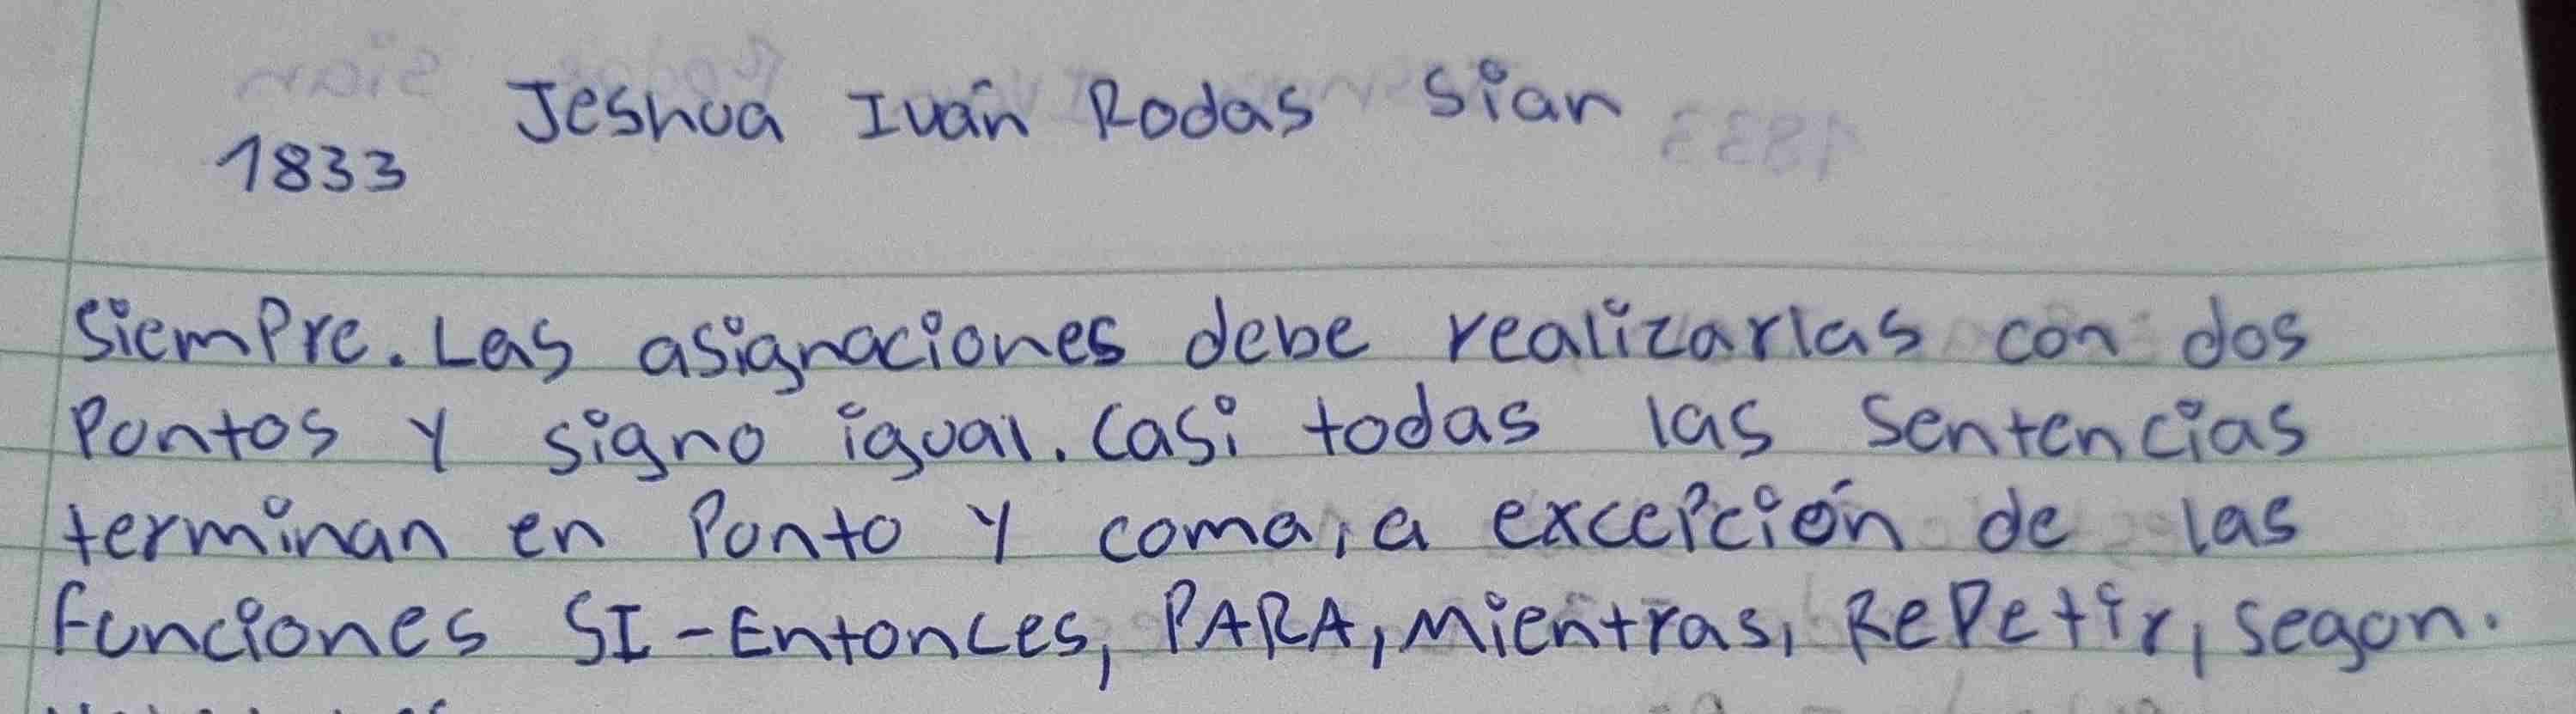 Jeshua Iván Rodas Sian
1833
siempre. Las asignaciones debe realizarlas con dos
Puntos y signo igual. Casi todas las sentencias
terminan en Punto y coma, a excepción de las
funciones SI-Entonces, PARA, Mientras, RePetir, segun.